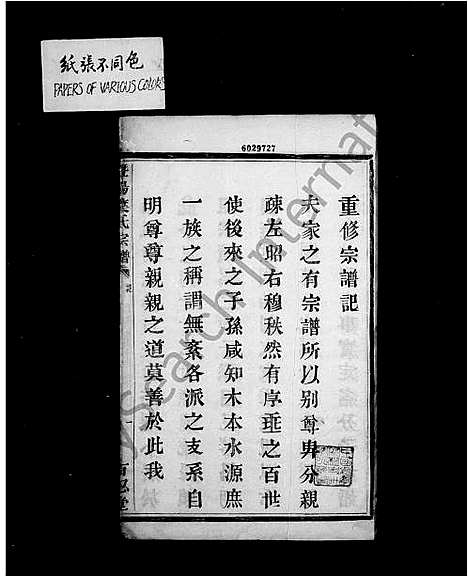 紙張不同色
PAPERS OF VARIOUS COLORS
6029727
重修宗譜記
夫家之有宗譜所以别尊卑分親
疎左昭右穆秩然有序垂之百世
使後來之子孫咸知木本水源庶
一族之稱謂無紊各派之支系自
明尊尊親親之道莫善於此我
氏宗譜